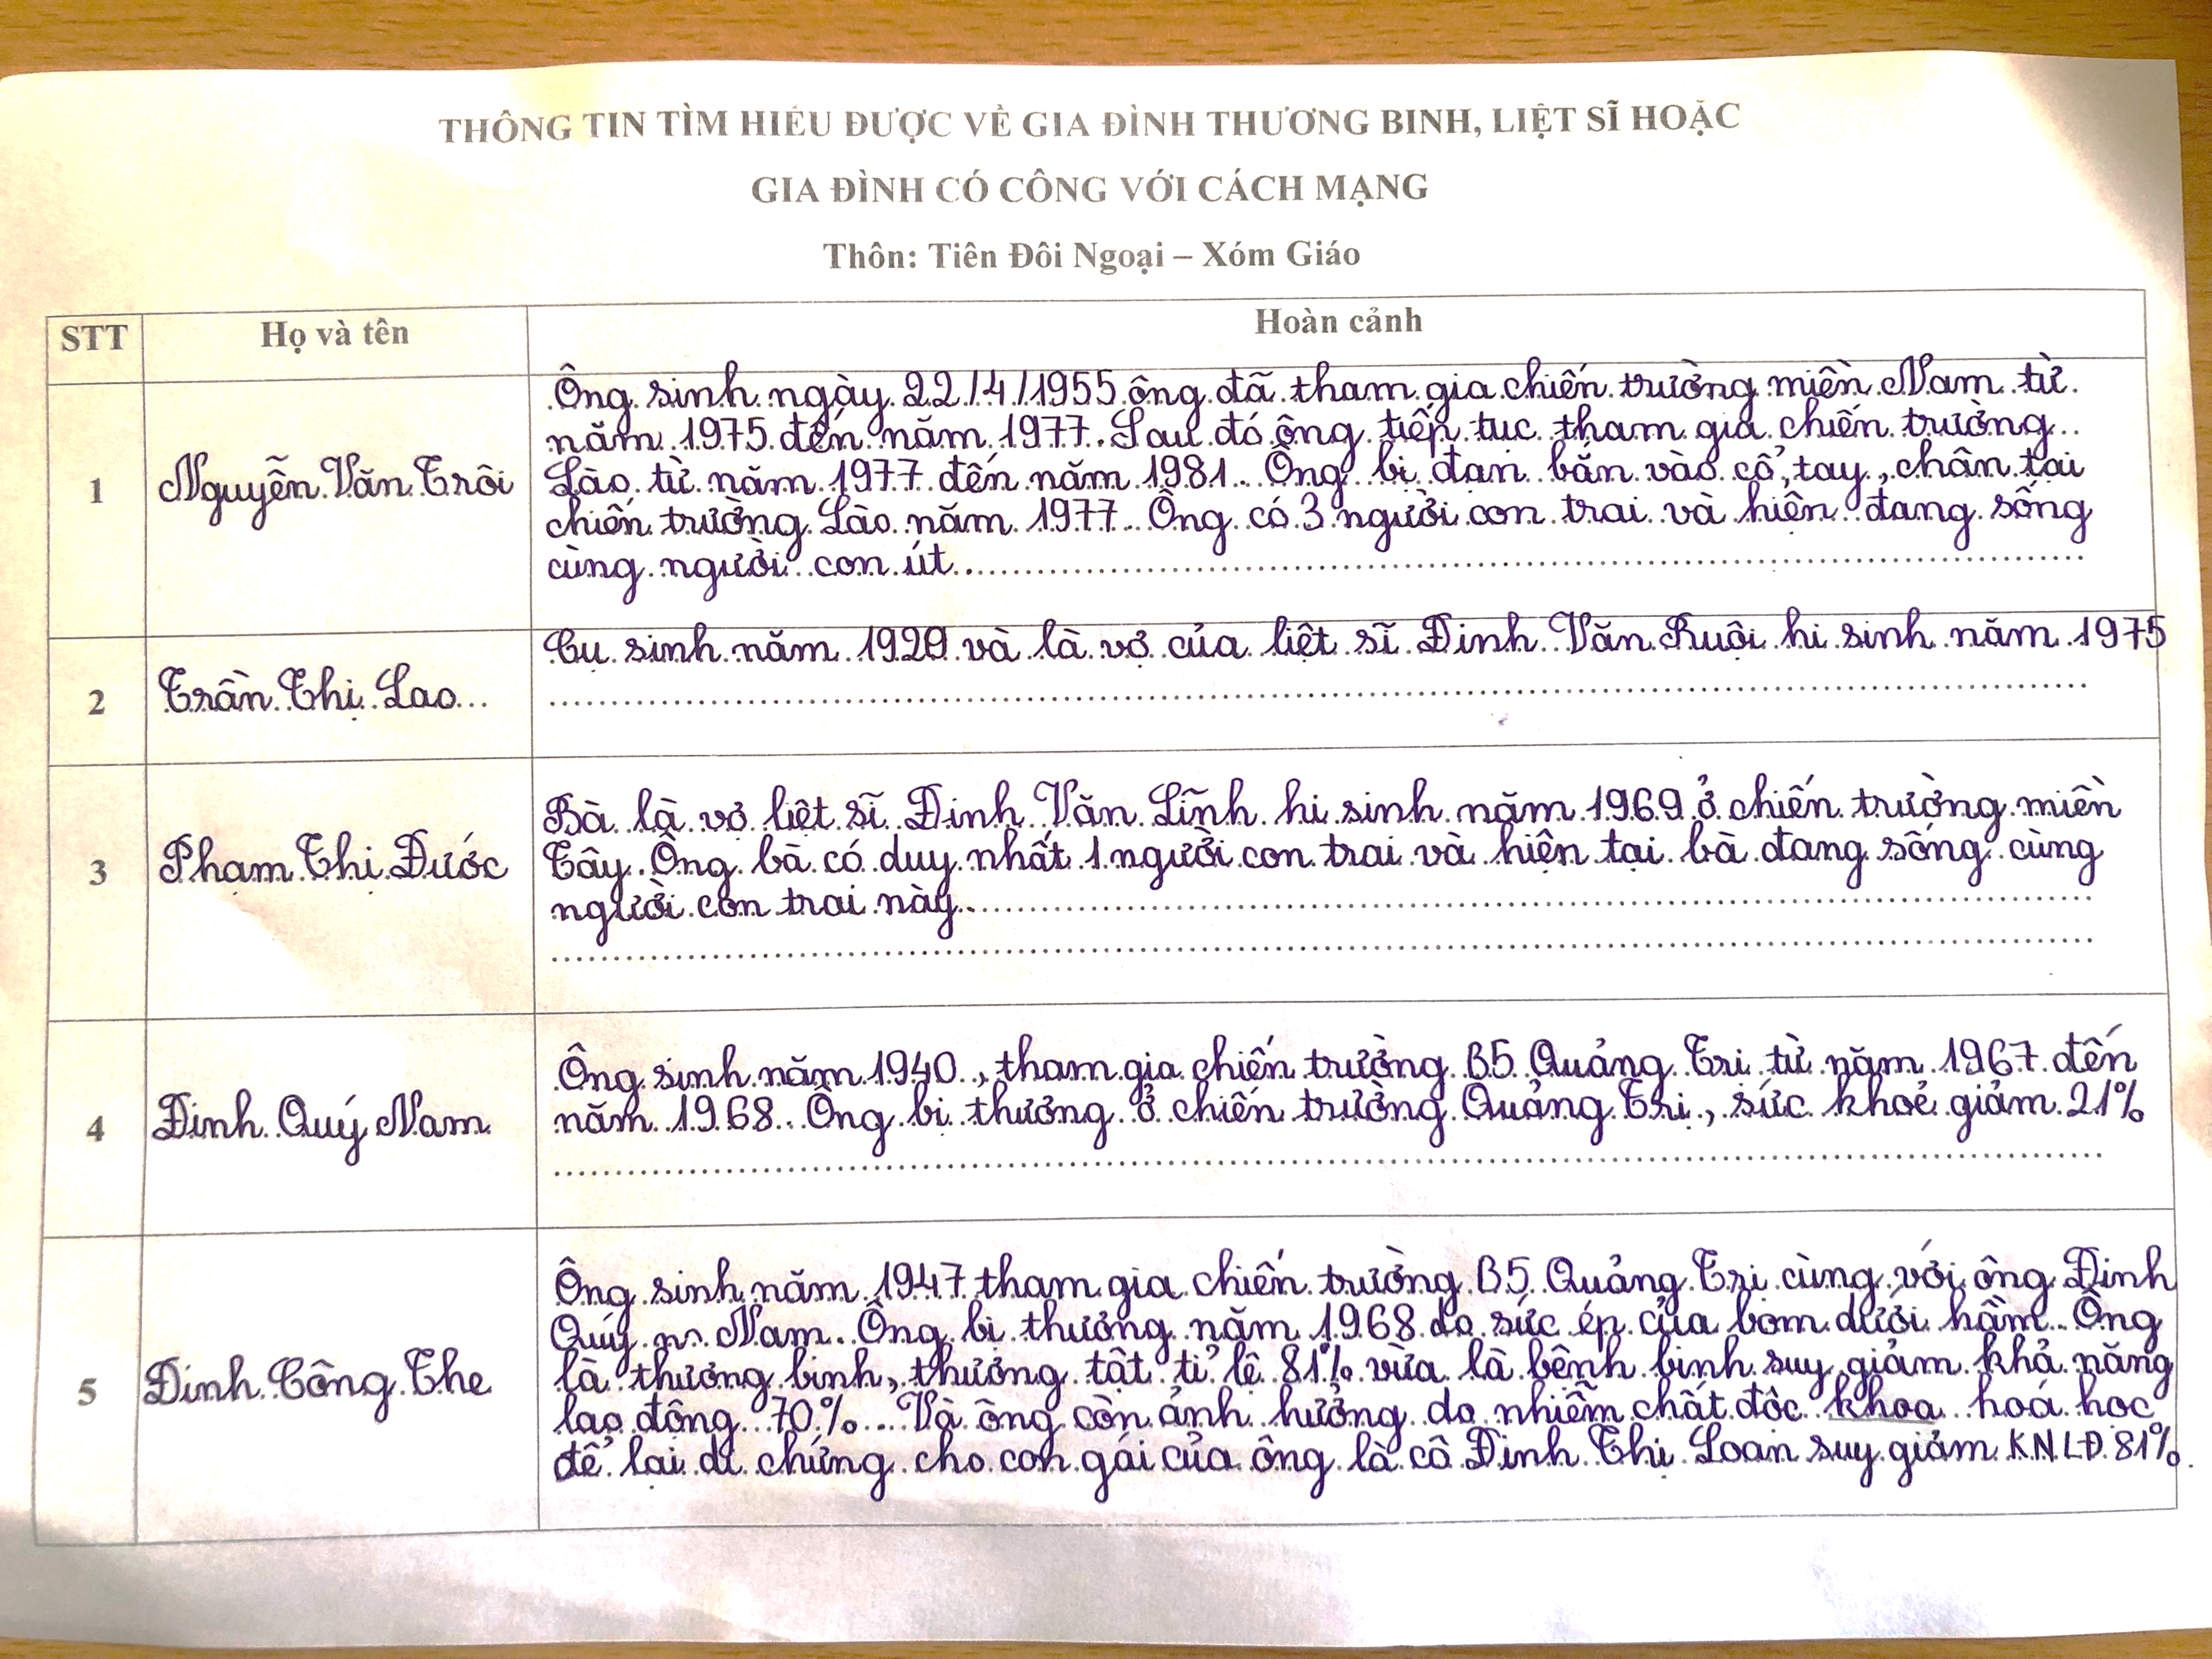 THÔNG TIN TÌM HIỂU ĐƯỢC VỀ GIA ĐÌNH THƯƠNG BINH, LIỆT SĨ HOẶC
GIA ĐÌNH CÓ CÔNG VỚI CÁCH MẠNG
Thôn: Tiên Đôi Ngoại – Xóm Giáo
STT Họ và tên Hoàn cảnh
1 Nguyễn Văn Trôi
Ông sinh ngày 22/4/1955 ông đã tham gia chiến trường miền Nam từ
năm 1975 đến năm 1977. Sau đó ông tiếp tục tham gia chiến trường
Lào từ năm 1977 đến năm 1981. Ông bị đạn bắn vào cổ tay, chân tại
chiến trường Lào năm 1977. Ông có 3 người con trai và hiện đang sống
cùng người con út.
2 Trần Thị Lao
Cụ sinh năm 1929 và là vợ của liệt sĩ Đinh Văn Ruội hi sinh năm 1975
3 Phạm Thị Đước
Bà là vợ liệt sĩ Đinh Văn Lĩnh hi sinh năm 1969 ở chiến trường miền
Tây. Ông bà có duy nhất 1 người con trai và hiện tại bà đang sống cùng
người con trai này.
4 Đinh Quý Nam
Ông sinh năm 1940, tham gia chiến trường B5 Quảng Trị từ năm 1967 đến
năm 1968. Ông bị thương ở chiến trường Quảng Trị, sức khoẻ giảm 21%
5 Đinh Công The
Ông sinh năm 1947 tham gia chiến trường B5 Quảng Trị cùng với ông Đinh
Quý Nam. Ông bị thương năm 1968 do sức ép của bom dưới hầm. Ông
là thương binh, thương tật tỉ lệ 81% vừa là bệnh binh suy giảm khả năng
lao động 70%. Và ông còn ảnh hưởng do nhiễm chất độc khoa hoá học
để lại di chứng cho con gái của ông là cô Đinh Thị Loan suy giảm K.N.L.Đ 81%.